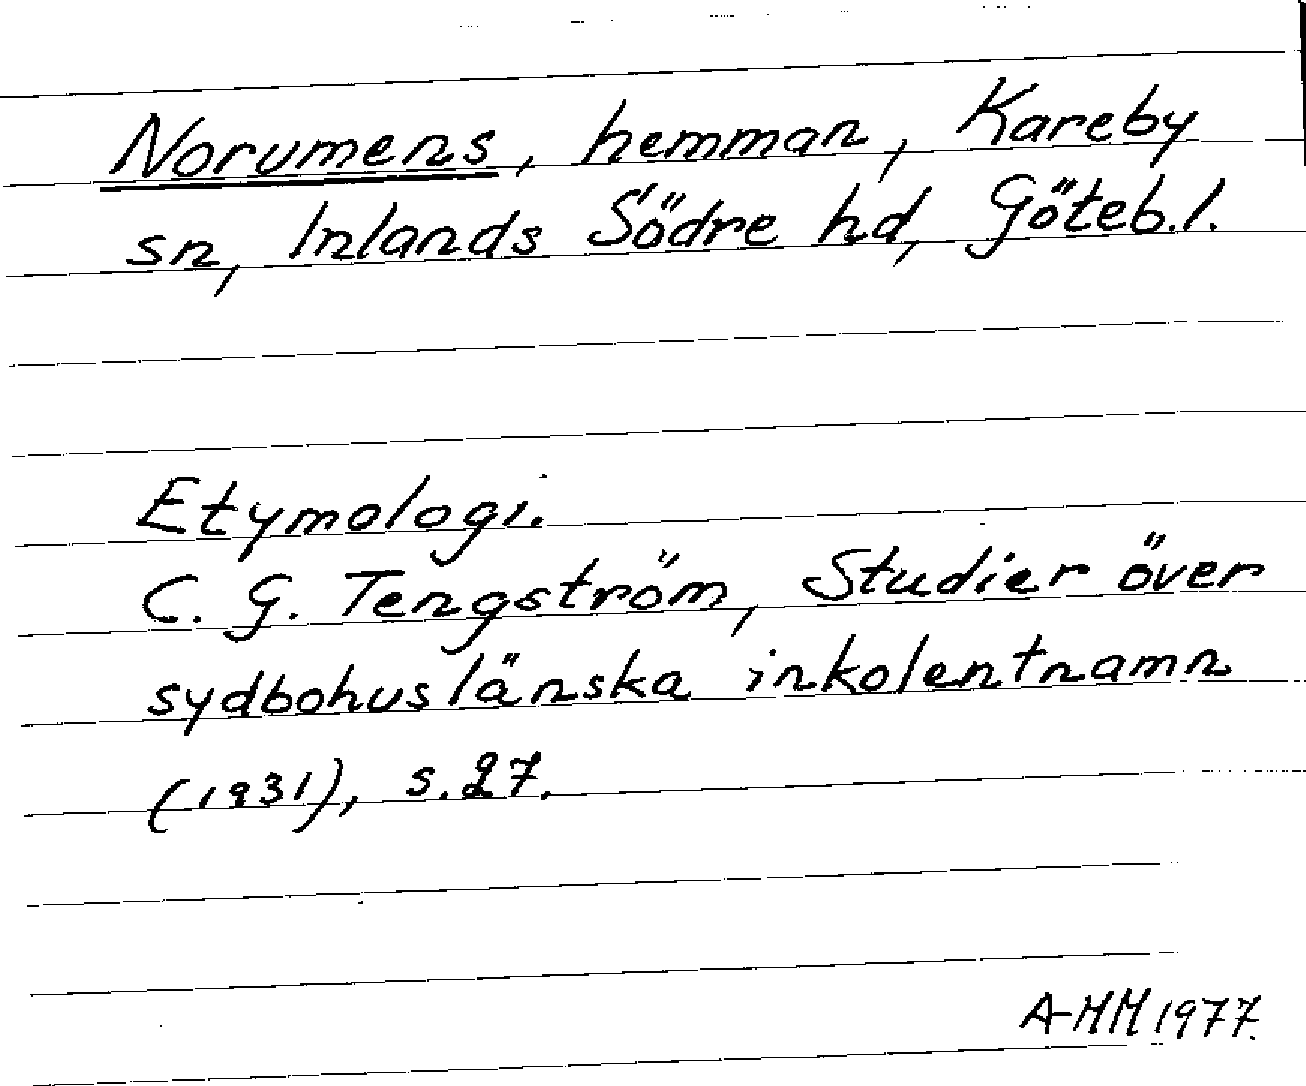 Norumens, hemman, Kareby
sn, Inlands Södre hd, Göteb.l.
Etymologi.
C. G. Tengström, Studier över
sydbohuslänska inkolentnamn
(1931), s. 27.
A-MM 1977.